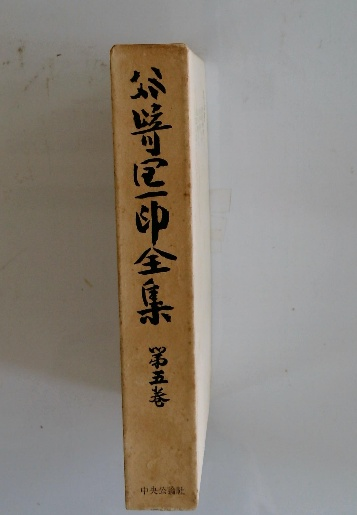 谷崎潤一郎全集
第五巻
中央公論社